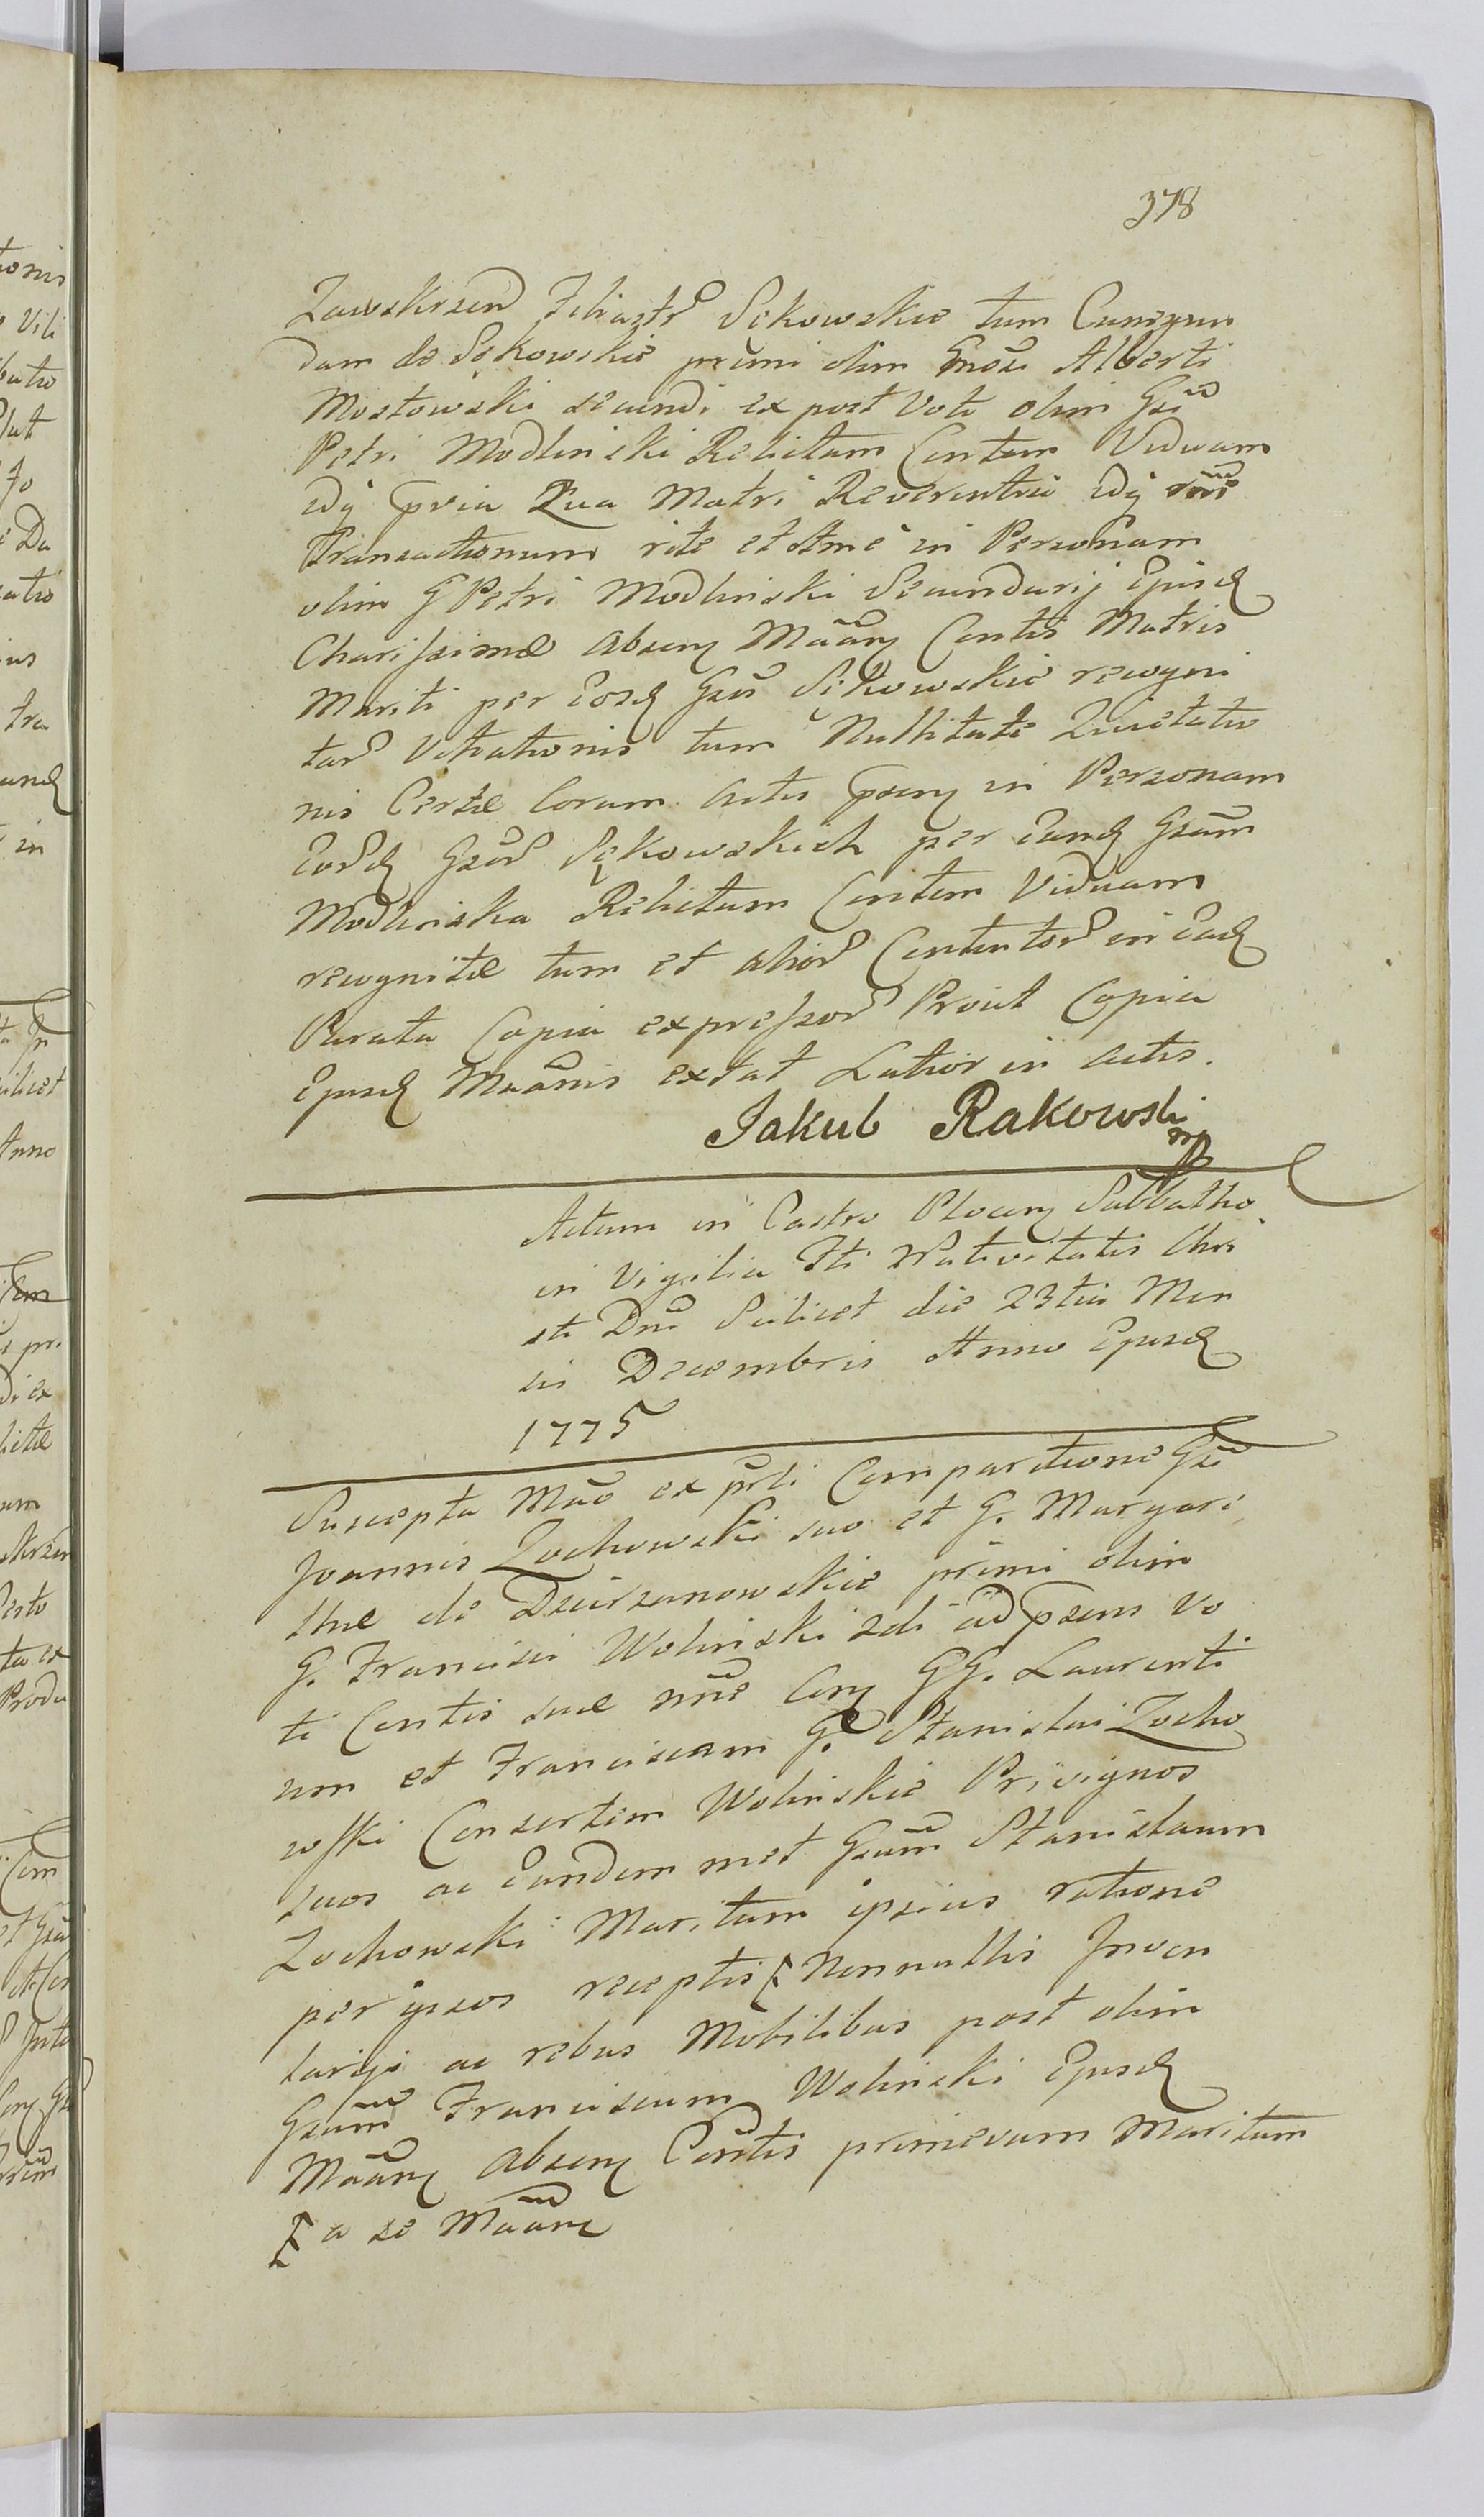 378
Zawskrzen Filiastr Sękowskie tum Cunegun
dam de Sękowskie primi olim Gnosi Alberti
Mostowski secundi ex post Voti olim Gsi
Petri Modlinski Relictam Contem Viduam
idq pvia Sua Matri Reverentia idq nne
Transactionum rite et ltme in Personam
olim G Petri Modlinski Secundarij Ejusd
Charissimæ absenq Maarq Contis Matris
Mariti per Eosd Gsos Sękowskie recogni
tar Vitiationis tum Nullitate Quietatio
nis Certæ Coram Actis psenq in Personam
Eord Gsor Sękowskich per Eand Gsam
Modlinska Relictam Contem Viduam
recognitæ tum et alior Contentor in Ead
Parata Copia expressor Prout Copia
Ejusd Maonis extat Latior in Actis.
Jakub Rakowski
mp
Actum in Castro Plocenq Sabbatho
in Vigilia Fti Nativitatis Chri
sti Dni Scilicet die 23tia Men
sis Decembris Anno Ejusd
1775
Suscepta Mao ex prli Comparitione Gsi
Joannis Zochowski suo et G. Margari
thæ de Dzierzanowskie primi olim
G. Francisci Wolinski 2di ad psens Vo
ti Contis suæ nne Conq GG. Laurenti
um et Franciscam G. Stanislai Zocho
wski Consortem Wolinskie Privignos
suos ac Eundem met Gsum Stanislaum
Zochowski Maritum ipsius ratione
per ipsos receptis Nonnullis Inven
tarijs ac rebus Mobilibus post olim
Gsum Franciscum Wolinski Ejusd
Maarq absenq Contis primevum Maritum
a se Maare